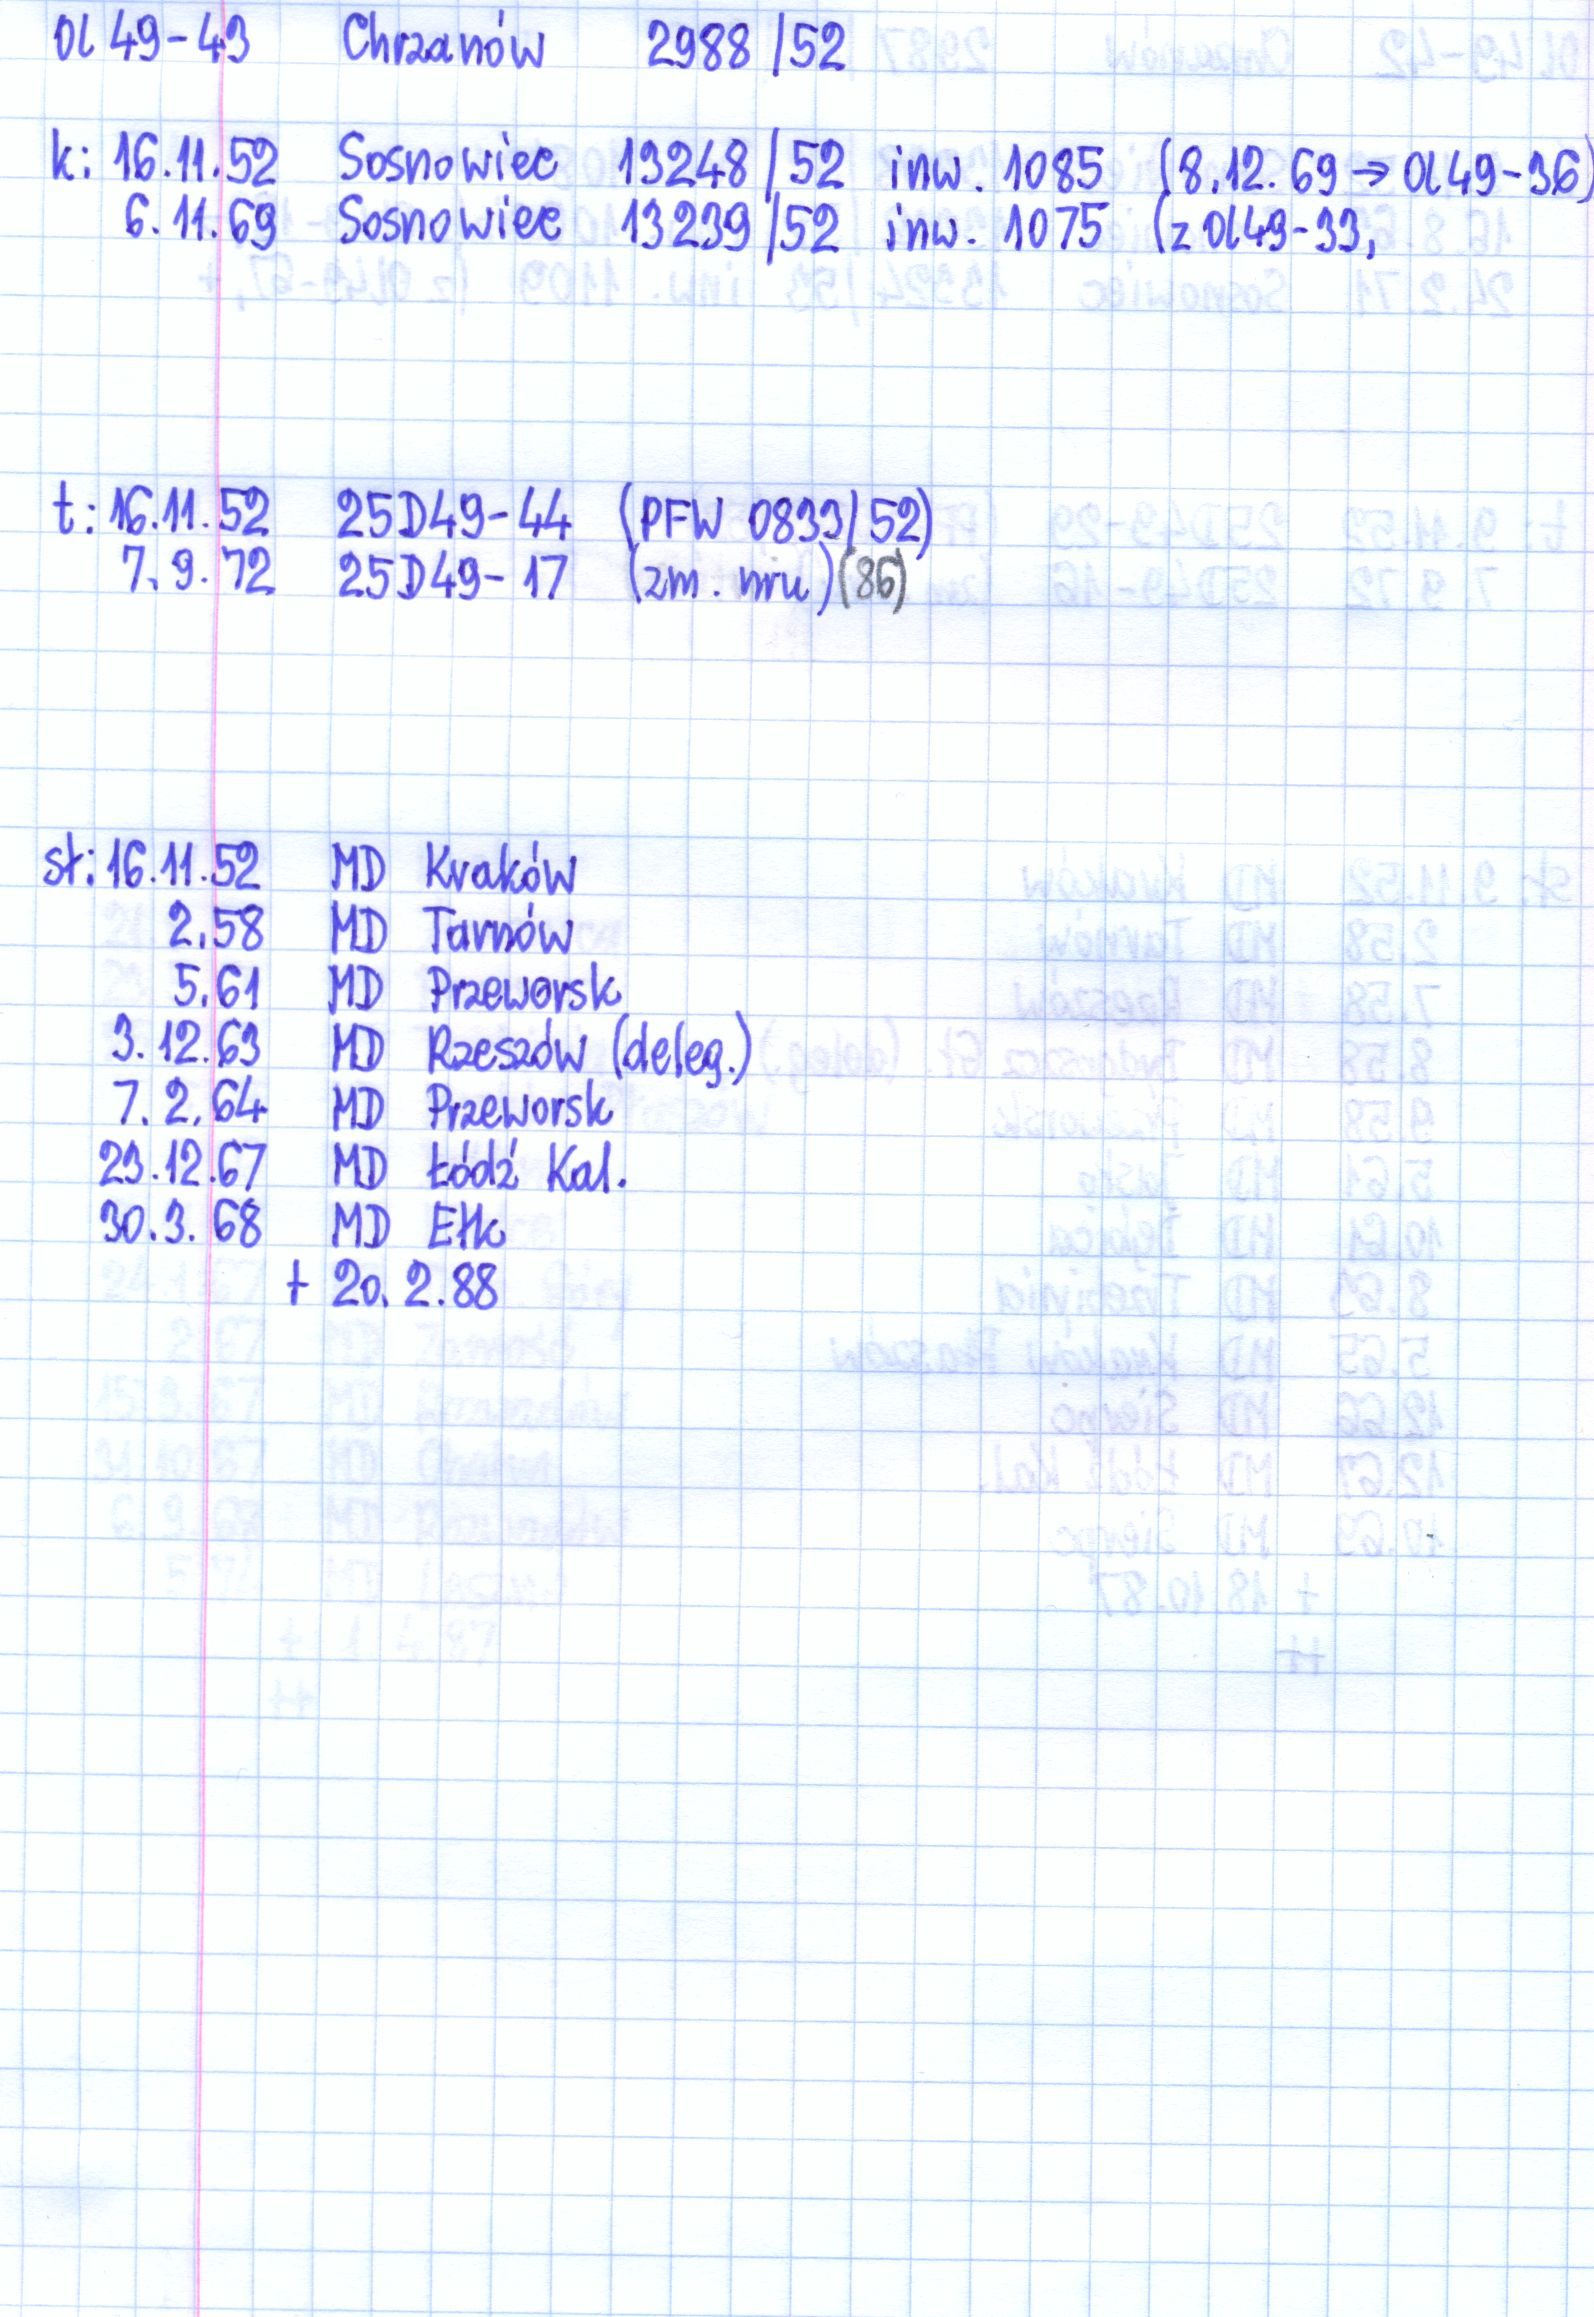 Ol 49-43 Chrzanów 2988/52
k: 16.11.52 Sosnowiec 13248/52 inw. 1085 (8.12.69 → Ol49-36)
6.11.69 Sosnowiec 13239/52 inw. 1075 (z Ol49-33,
t: 16.11.52 25D49-44 (PFW 0833/52)
7.9.72 25D49-17 (zm. nru) (86)
st: 16.11.52 MD Kraków
2.58 MD Tarnów
5.61 MD Przeworsk
3.12.63 MD Rzeszów (deleg.)
7.2.64 MD Przeworsk
23.12.67 MD Łódź Kal.
30.3.68 MD Ełk
+ 20.2.88